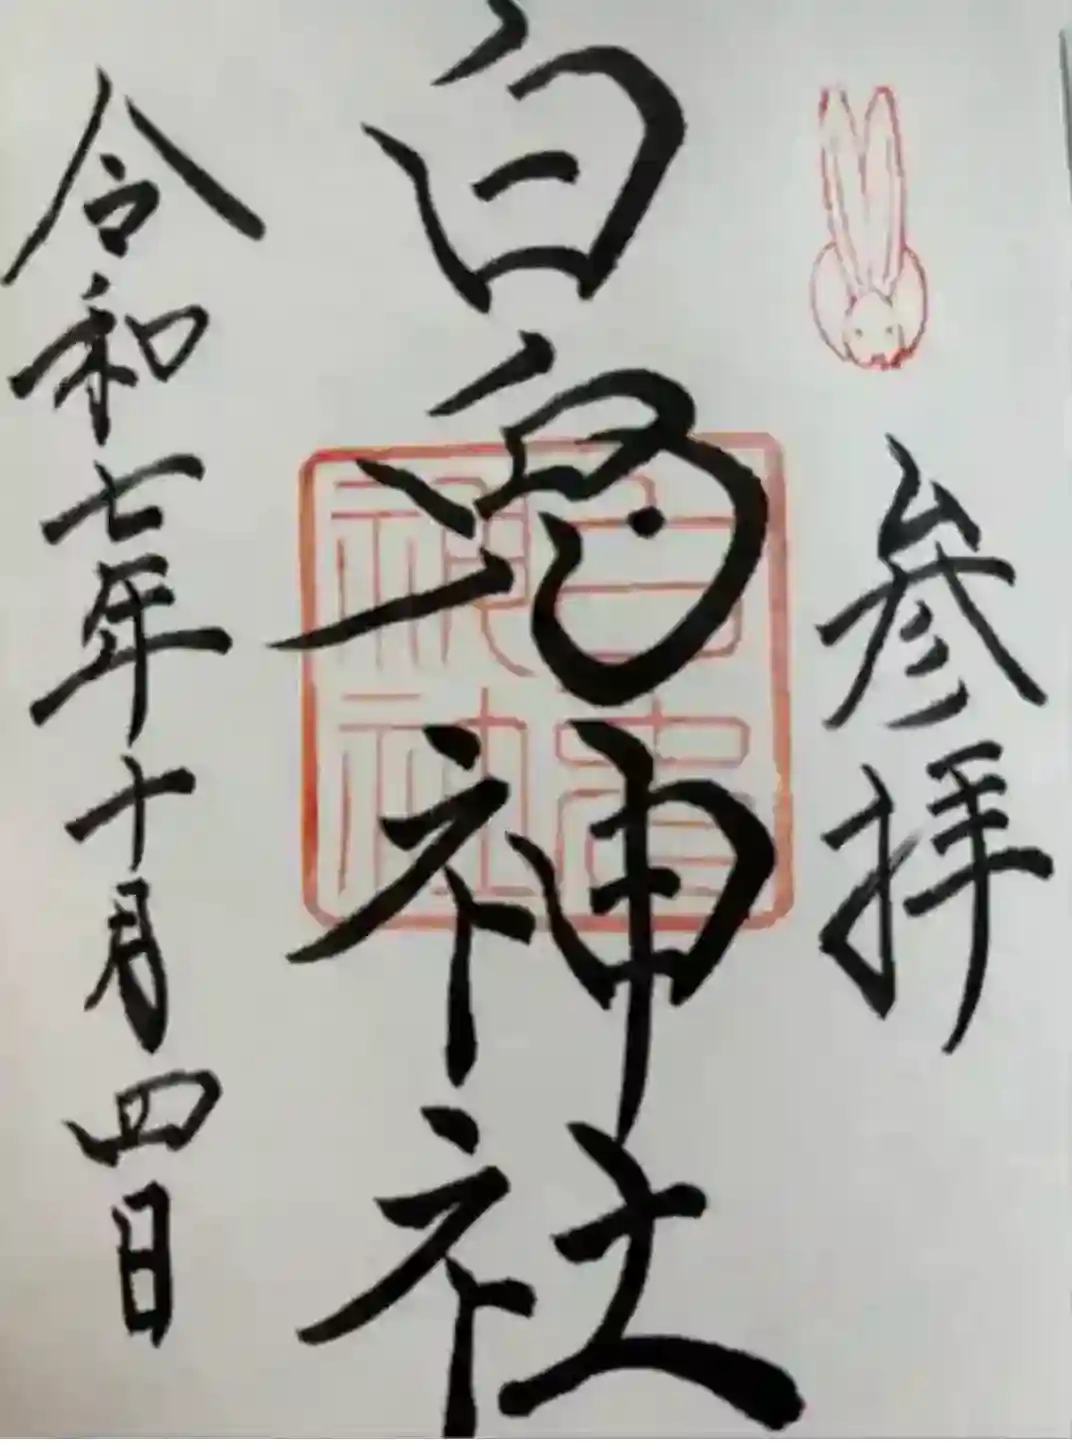 参拝
白兎神社
令和七年十月四日